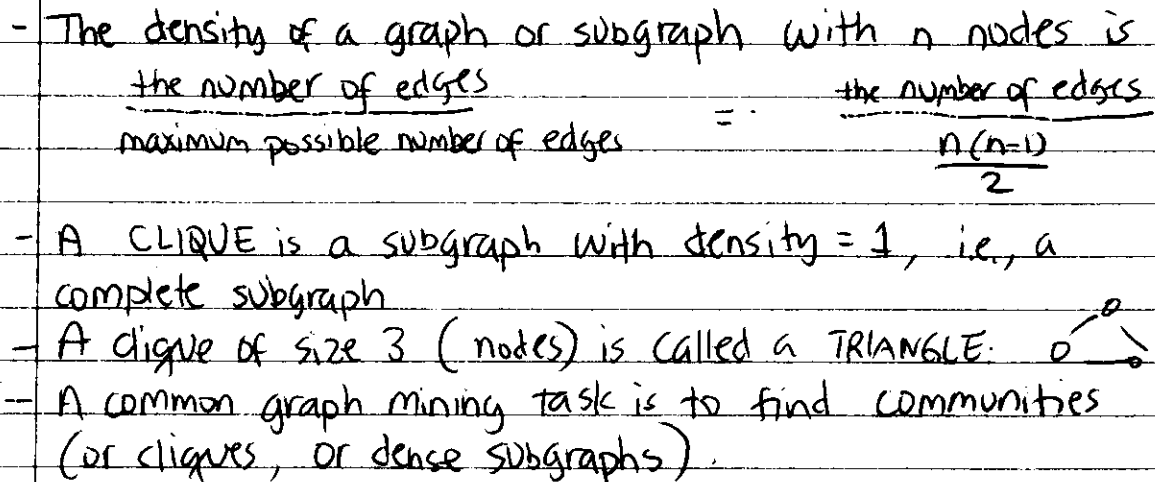 - The density of a graph or subgraph with n nodes is
the number of edges = the number of edges
maximum possible number of edges n(n-1)
2
- A CLIQUE is a subgraph with density = 1, i.e., a
complete subgraph
- A clique of size 3 (nodes) is called a TRIANGLE:
- A common graph mining task is to find communities
(or cliques, or dense subgraphs).